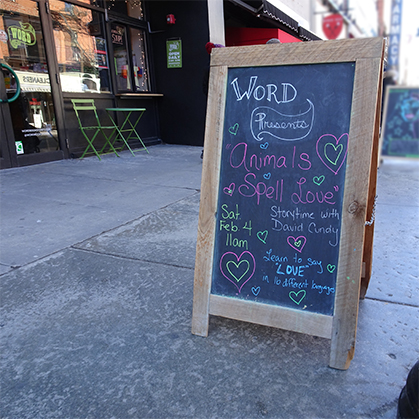 WORD
Presents
"Animals
Spell Love"
Sat.
Feb. 4
11am
Storytime with
David Cundy
Learn to say
"LOVE"
in 16 different languages
CLEANERS